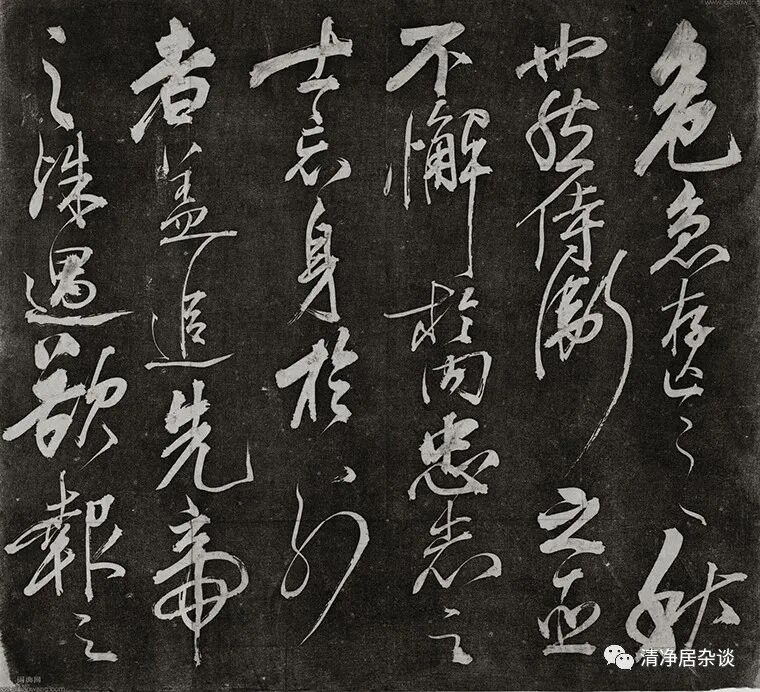 危急存亡之秋
也然侍衛之臣
不懈於内忠志之
士忘身於外
者盖追先帝
之殊遇欲報之
清净居杂谈